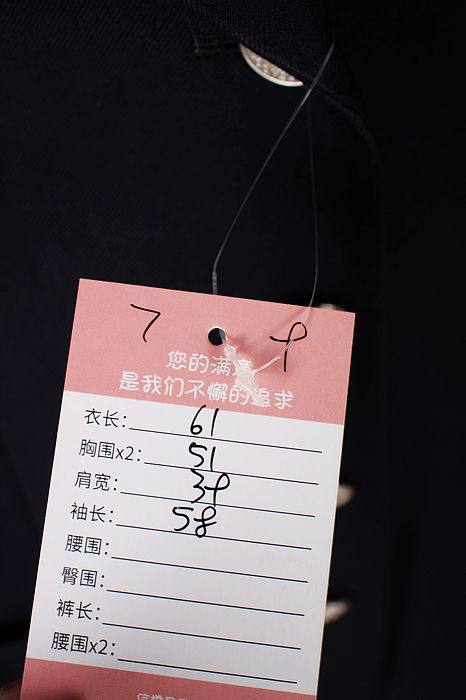 7 9
您的满意
是我们不懈的追求
衣长: 61
胸围x2: 51
肩宽: 39
袖长: 58
腰围:
臀围:
裤长:
腰围x2: